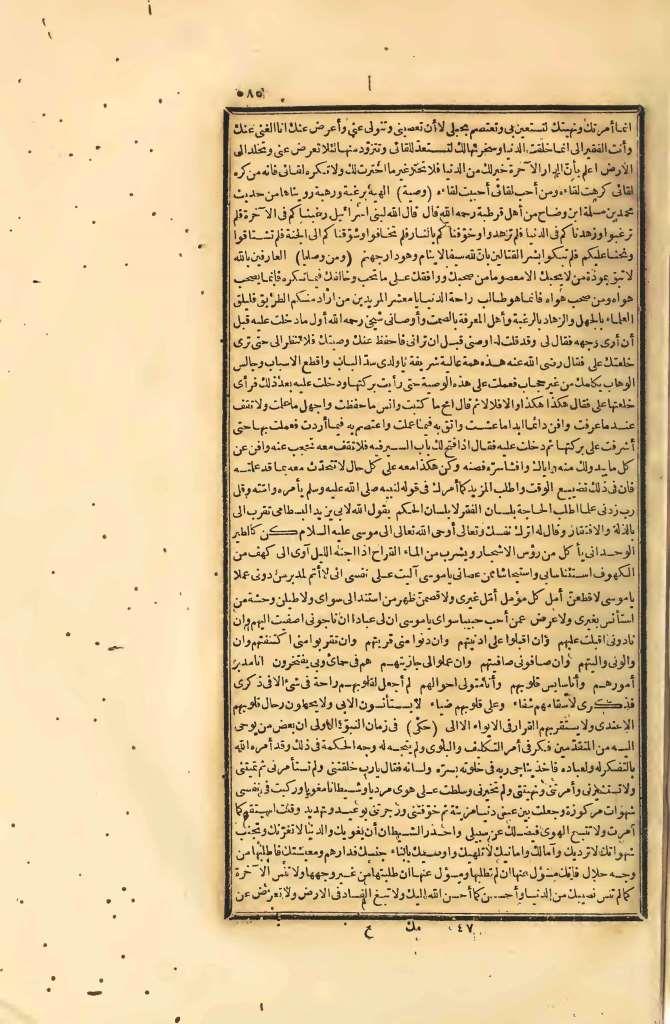 ٥٨٠
انما أمرتك ونهيتك لتستعين بي وتعتصم بحبلي لا أن تعصيني وتتولى عني وأعرض عنك انا الغني عنك
وأنت الفقير الى انما خلقت الدنيا وسخرتها لك لتستعد للقائى وتتزود منها لئلا تعرض عنى وتخلد الى
الأرض اعلم بأن الدار الآخرة خير لك من الدنيا فلا تختر غير ما اخترت لك ولا تكره لقائى فانه من كره
لقائى كرهت لقاءه ومن أحب لقائى أحببت لقاءه (وصية) الهية برغبة ورهبة رويناها من حديث
محمد بن مسلمة ابن وضاح من أهل قرطبة رحمه الله قال قال الله لبنى اسرائيل رغبناكم فى الآخرة فلم
ترغبوا وزهدناكم فى الدنيا فلم تزهدوا وخوفناكم بالنار فلم تخافوا وشوقناكم الى الجنة فلم تشتاقوا
ونحنا عليكم فلم تبكوا بشر القتالين بان لله سيفا لا ينام وهو دار جهنم (ومن وصايا) العارفين بالله
لا تثق بمودة من لا يحبك الا معصوما من صحبك ووافقك على ما تحب وخالفك فيما تكره فانما يصحب
هواه ومن صحب هواه فانما هو طالب راحة الدنيا يا معشر المريدين من أراد منكم الطريق فليلق
العلماء بالجهل والزهاد بالرغبة وأهل المعرفة بالصمت وأوصانى شيخى رحمه الله أول ما دخلت عليه قبل
أن أرى وجهه فقال لى وقد قلت له أوصنى قبل ان ترانى فأحفظ عنك وصيتك فلا تنظر الى حتى ترى
خلعتك على فقال رضى الله عنه هذه همة عالية شريفة يا ولدى سد الباب واقطع الاسباب وجالس
الوهاب يكلمك من غير حجاب فعملت على هذه الوصية حتى رأيت بركتها ودخلت عليه بعد ذلك فرأى
خلعتها على فقال هكذا هكذا والا فلا لا ثم قال امح ما كتبت وانس ما حفظت واجهل ما علمت ولا تقف
عند ما عرفت وافن دائما ابدا ما عشت واثق به فيما علمت واعتصم به فيما أردت فعملت بها حتى
أشرفت على بركتها ثم دخلت عليه فقال اذا فتح لك باب السير فيه فلا تقف معه تحجب عنه وافن عن
كل ما يبدو لك منه براياك وافشاء سره فصنه وكن هكذا معه على كل حال لا تتحدث معه بما قد علمته
فان فى ذلك تضييع الوقت واطلب المزيد كما أمرك فى قوله لنبيه صلى الله عليه وسلم يأمره وامته وقل
رب زدنى علما اطلب الحاجة بلسان الفقر لا بلسان الحكم يقول الله لابى يزيد البسطامى تقرب الى
بالذلة والافتقار وقال له اترك نفسك وتعالى أوحى الله تعالى الى موسى عليه السلام كن كالطير
الوحدانى يأكل من رؤس الاشجار ويشرب من الماء القراح اذا اجنه الليل آوى الى كهف من
الكهوف استئناسا بى واستيحاشا ممن عصانى يا موسى آليت على نفسى انى لا أتم لمدبر من دونى عملا
يا موسى لا قطعن أمل كل مؤمل أمل غيرى ولا قصمن ظهر من استند الى سواى ولا طيلن وحشة من
استأنس بغيرى ولا عرض عمن أحب حبيبا سواى يا موسى ان لى عبادا ان ناجونى أصغيت اليهم وان
نادونى اقبلت عليهم وان اقبلوا على ادنيتهم وان دنوا منى قربتهم وان تقربوا منى اكتنفتهم وان
والونى واليتهم وان صافونى صافيتهم وان عملوا لى جازيتهم هم فى حماى وبى يفتخرون انا مدبر
أمورهم وأنا سايس قلوبهم وأنا متولى احوالهم لم أجعل لقلوبهم راحة فى شئ الا فى ذكرى
فذكرى لاسقامهم شفاء وعلى قلوبهم ضياء لا يستأنسون الا بى ولا يحطون رحال قلوبهم
الا عندى ولا يستقر بهم القرار فى الايواء الا الى (حكى) فى زمان النبوة الاولى ان بعض من يوحى
اليه من المتقدمين فكر فى أمر التكليف والبلوى ولم يتجه له وجه الحكمة فى ذلك وقد أمره الله
بالتفكر له ولعباده فأخذ يناجى ربه فى خلوته بسره ولسانه فقال يا رب خلقتنى ولم تستأمرنى ثم تميتنى
ولا تستشيرنى وأمرتنى ونهيتنى ولم تخيرنى وسلطت على هوى مرديا وشيطانا مغويا وركبت فى نفسى
شهوات مركوزة وجعلت بين عينى دنيا مزينة ثم خوفتنى وزجرتنى بوعيد وتهديد وقلت استقم كما
أمرت ولا تتبع الهوى فيضلك عن سبيلى واحذر الشيطان أن يغويك والدنيا لا تغرنك وتجنب
شهواتك لا ترديك وآمالك وامانيك لا تلهيك واوصيك بابناء جنسك فدارهم ومعيشتك فاطلبها من
وجه حلال فانك مسؤل عنها ان لم تطلبها ومسؤل عنها ان طلبتها من غير وجهها ولا تنس الآخرة
كما لم تنس نصيبك من الدنيا وأحسن كما أحسن الله اليك ولا تبغ الفساد فى الارض ولا تعرض عن
٤٧ مك ح